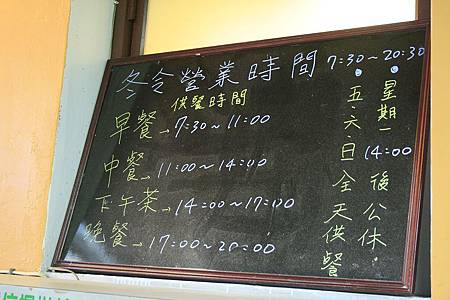 冬令營業時間 7:30~20:30
供餐時間
早餐→7:30~11:00
中餐→11:00~14:00
下午茶→14:00~17:00
晚餐→17:00~20:00
星期一14:00後公休
五、六、日全天供餐